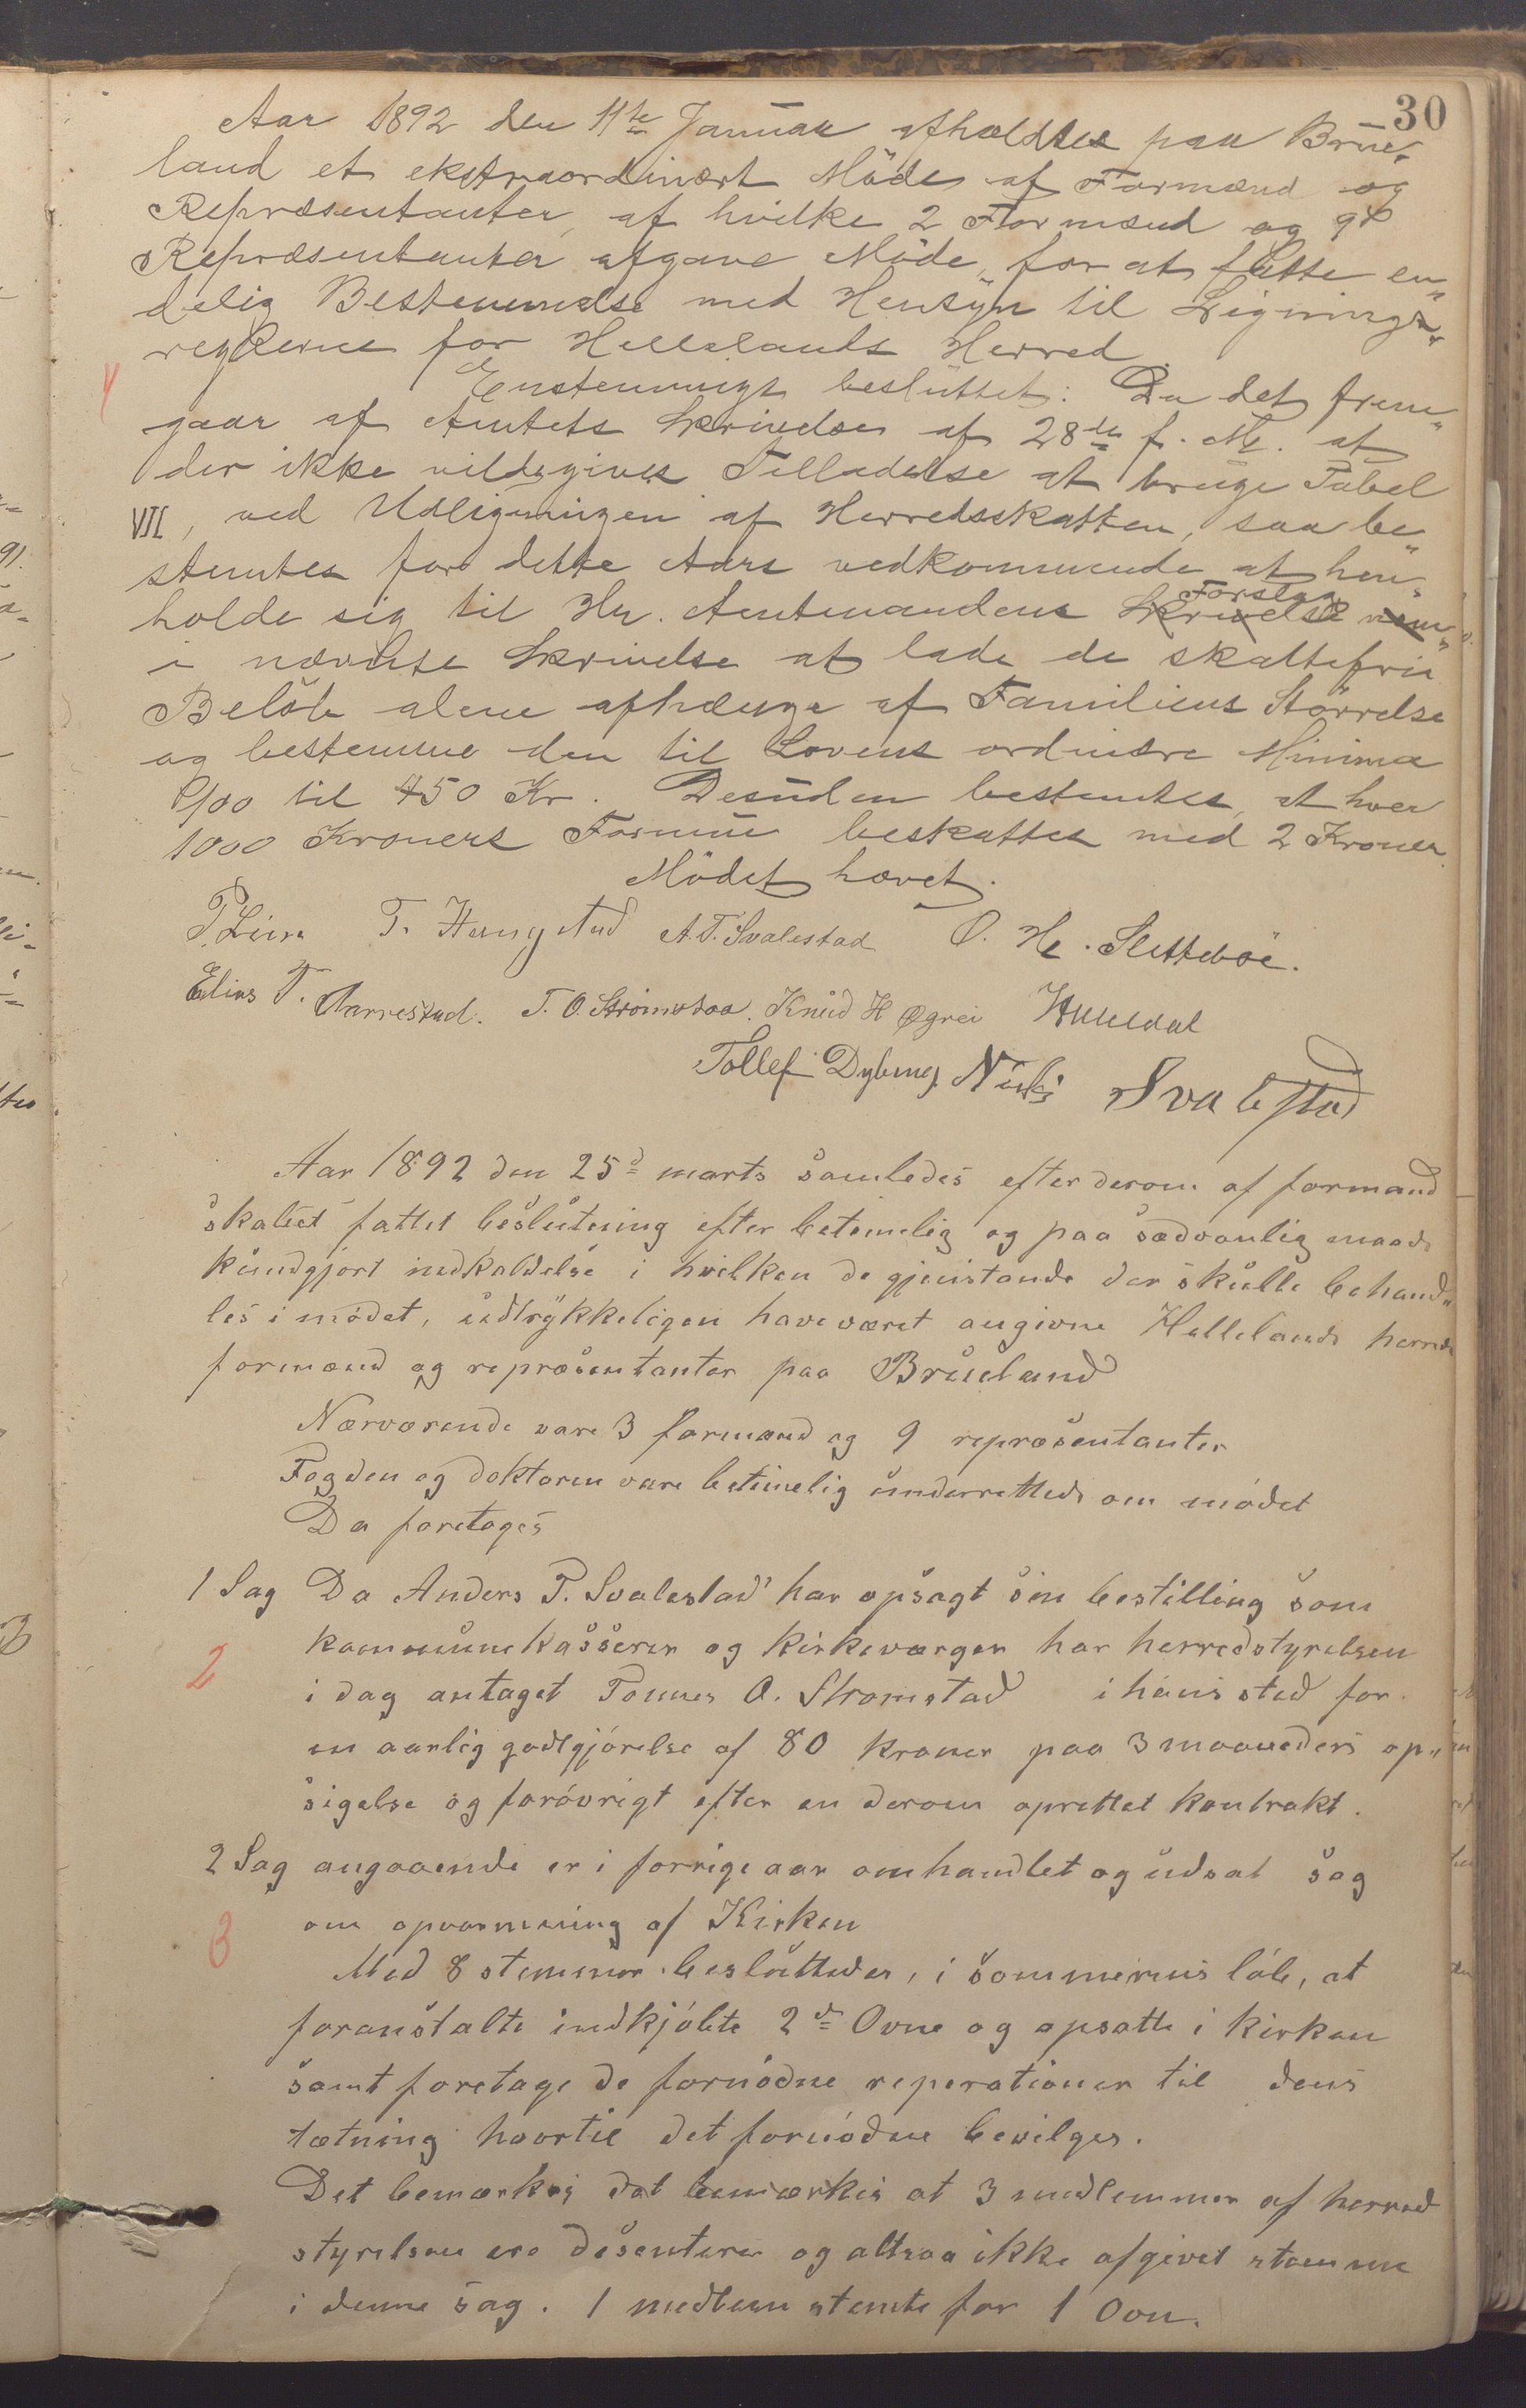 30
Aar 1892 den 11te Januar afholdtes paa Brue-
land et ekstraordinært Möde af Formænd og
Repræsentanter, af hvilke 2 Formænd og 9
Repræsentanter afgave Möde, for at fatte en"
delig Bestemmelse med Hensyn til Lignings"
reglerne for Hellelands Herred
Enstemmigt besluttet: Da det frem"
gaar af Amtets Skrivelse af 28de f. M. at
der ikke vilde gives Tilladelse at bruge Tabel
VII, ved Udligningen af Herredsskatten, saa be"
stemtes for dette Aars vedkommende at hen"
holde sig til Hr. Amtmandens Skrivelse Forslag
i nævnte Skrivelse at lade de skattefrie
Belöb alene afhænge af Familiens Störrelse
og bestemme den til Lovens ordinære Minima
til 450 Kr. Desuden bestemtes, at hver
1000 Kroners Formue beskattes med 2 Kroner.
Mödet hævet.
T. A. T. Svalestad O. H. Sletteböe.
Elias T. Aarrestad. T. O. Strömstad. Knud H Øgrei
Tollef Dybing Svalestad
Aar 1892 den 25d marts samledes efter derom af formand
skabet fattet beslutning efter betimelig og paa sædvanlig maade
kundgjort indkaldelse i hvilken de gjenstande der skulle behand"
les i mødet, udtrykkeligen have været angivne Hellelands herreds
formænd og repræsentanter paa Brueland
Nærværende vare 3 formænd og 9 repræsentanter
Fogden og doktoren vare betimelig underrettede om mødet
Da foretoges
1 Sag Da Anders T. Svalestad har opsagt sin bestilling som
kommunekasserer og kirkeværger har herredstyrelsen
2
i dag antaget Tønnes O. Strømstad i hans sted for
en aarlig godtgjórelse af 80 kroner paa 3 maaneders op"
sigelse og forøvrigt efter en derom oprettet kontrakt.
2 Sag angaaende er i forrige aar omhandlet og udsat sag
om opvarmning af Kirken
3
Med 8 stemmer besluttedes, i sommerens løb, at
foranstalte indkjøbte 2de Ovne og opsatte i kirken
samt foretage de fornødne reperationer til dens
tætning hvortil det fornødne bevilges.
Det bemærkes det bemærkes at 3 medlemmer af herred
styrelsen ere disentere og altsaa ikke afgivet stemme
i denne sag. 1 medlem stemte for 1 Ovn.